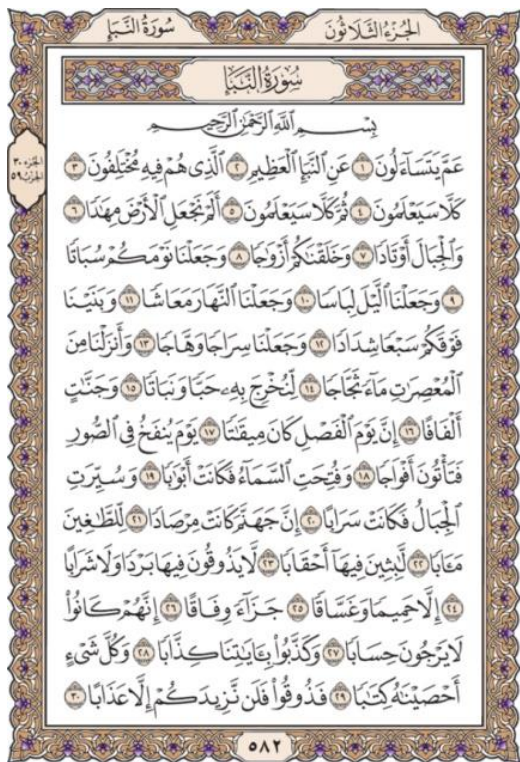 سُورَةُ النَّبَإِ
الجُزْءُ الثَّلَاثُونَ
سُورَةُ النَّبَإِ
الجزء ٣٠
الحزب ٥٩
بِسْمِ ٱللَّهِ ٱلرَّحْمَٰنِ ٱلرَّحِيمِ
عَمَّ يَتَسَآءَلُونَ ١ عَنِ ٱلنَّبَإِ ٱلْعَظِيمِ ٢ ٱلَّذِى هُمْ فِيهِ مُخْتَلِفُونَ ٣
كَلَّا سَيَعْلَمُونَ ٤ ثُمَّ كَلَّا سَيَعْلَمُونَ ٥ أَلَمْ نَجْعَلِ ٱلْأَرْضَ مِهَٰدًا ٦
وَٱلْجِبَالَ أَوْتَادًا ٧ وَخَلَقْنَٰكُمْ أَزْوَٰجًا ٨ وَجَعَلْنَا نَوْمَكُمْ سُبَاتًا
٩ وَجَعَلْنَا ٱلَّيْلَ لِبَاسًا ١٠ وَجَعَلْنَا ٱلنَّهَارَ مَعَاشًا ١١ وَبَنَيْنَا
فَوْقَكُمْ سَبْعًا شِدَادًا ١٢ وَجَعَلْنَا سِرَاجًا وَهَّاجًا ١٣ وَأَنزَلْنَا مِنَ
ٱلْمُعْصِرَٰتِ مَآءً ثَجَّاجًا ١٤ لِّنُخْرِجَ بِهِۦ حَبًّا وَنَبَاتًا ١٥ وَجَنَّٰتٍ
أَلْفَافًا ١٦ إِنَّ يَوْمَ ٱلْفَصْلِ كَانَ مِيقَٰتًا ١٧ يَوْمَ يُنفَخُ فِى ٱلصُّورِ
فَتَأْتُونَ أَفْوَاجًا ١٨ وَفُتِحَتِ ٱلسَّمَآءُ فَكَانَتْ أَبْوَٰبًا ١٩ وَسُيِّرَتِ
ٱلْجِبَالُ فَكَانَتْ سَرَابًا ٢٠ إِنَّ جَهَنَّمَ كَانَتْ مِرْصَادًا ٢١ لِّلطَّٰغِينَ
مَـَٔابًا ٢٢ لَّٰبِثِينَ فِيهَآ أَحْقَابًا ٢٣ لَّا يَذُوقُونَ فِيهَا بَرْدًا وَلَا شَرَابًا
٢٤ إِلَّا حَمِيمًا وَغَسَّاقًا ٢٥ جَزَآءً وِفَاقًا ٢٦ إِنَّهُمْ كَانُوا۟
لَا يَرْجُونَ حِسَابًا ٢٧ وَكَذَّبُوا۟ بِـَٔايَٰتِنَا كِذَّابًا ٢٨ وَكُلَّ شَىْءٍ
أَحْصَيْنَٰهُ كِتَٰبًا ٢٩ فَذُوقُوا۟ فَلَن نَّزِيدَكُمْ إِلَّا عَذَابًا ٣٠
٥٨٢